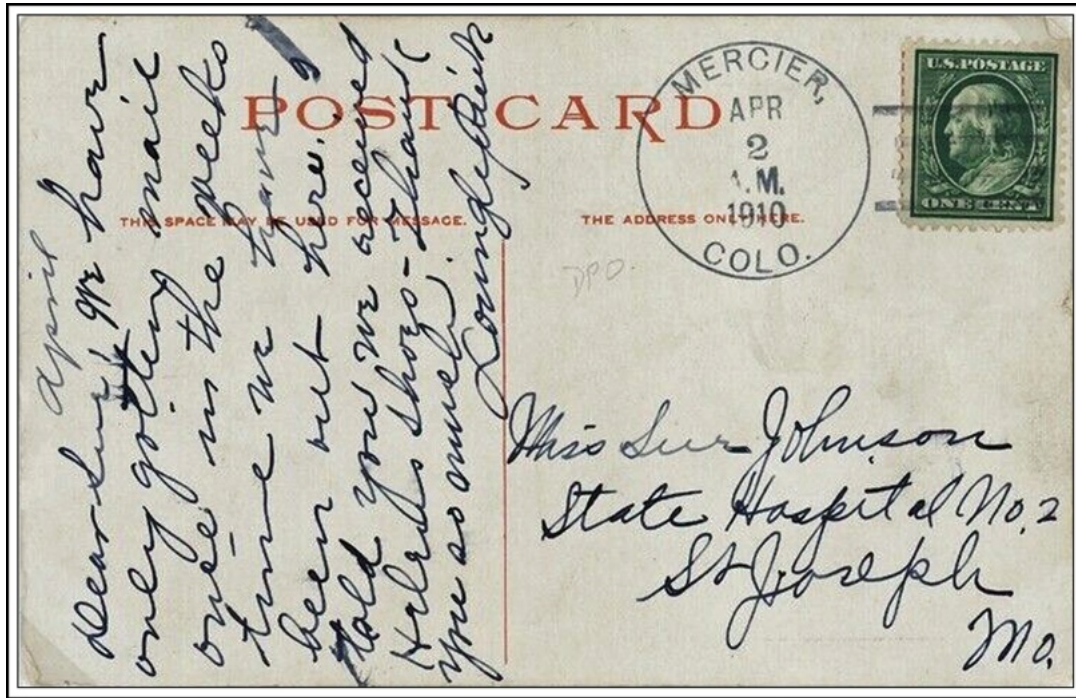 POST CARD
THIS SPACE MAY BE USED FOR MESSAGE.
THE ADDRESS ONLY HERE.
MERCIER,
APR
2
A.M.
1910
COLO.
U.S. POSTAGE
ONE CENT
DPO.
April
Dear Sue; We have
only gotten mail
once in the weeks
time we have
been out here. I
told you we received
Helens shoes - thank
you so much.
Lovingly Ruth
Miss Sue Johnson
State Hospital No. 2
St Joseph
Mo.